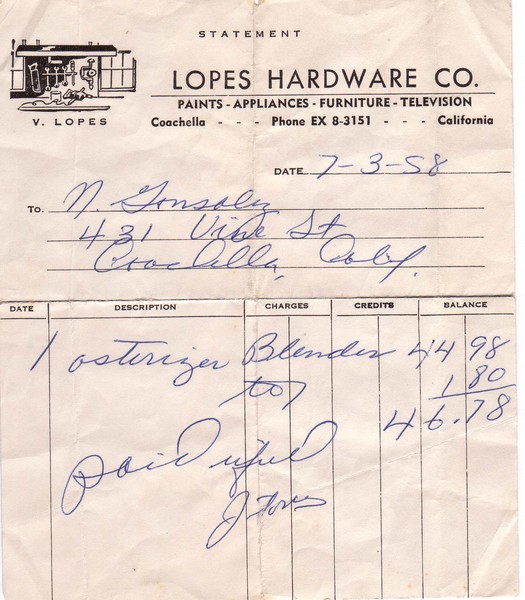 STATEMENT
LOPES HARDWARE CO.
PAINTS - APPLIANCES - FURNITURE - TELEVISION
V. LOPES
Coachella - - - Phone EX 8-3151 - - - California
DATE 7-3-58
TO. N. Gonsalez
431 Vine St
Coachella, Calif.
DATE DESCRIPTION CHARGES CREDITS BALANCE
1 osterizer Blender 44 98
1 80
46.78
paid